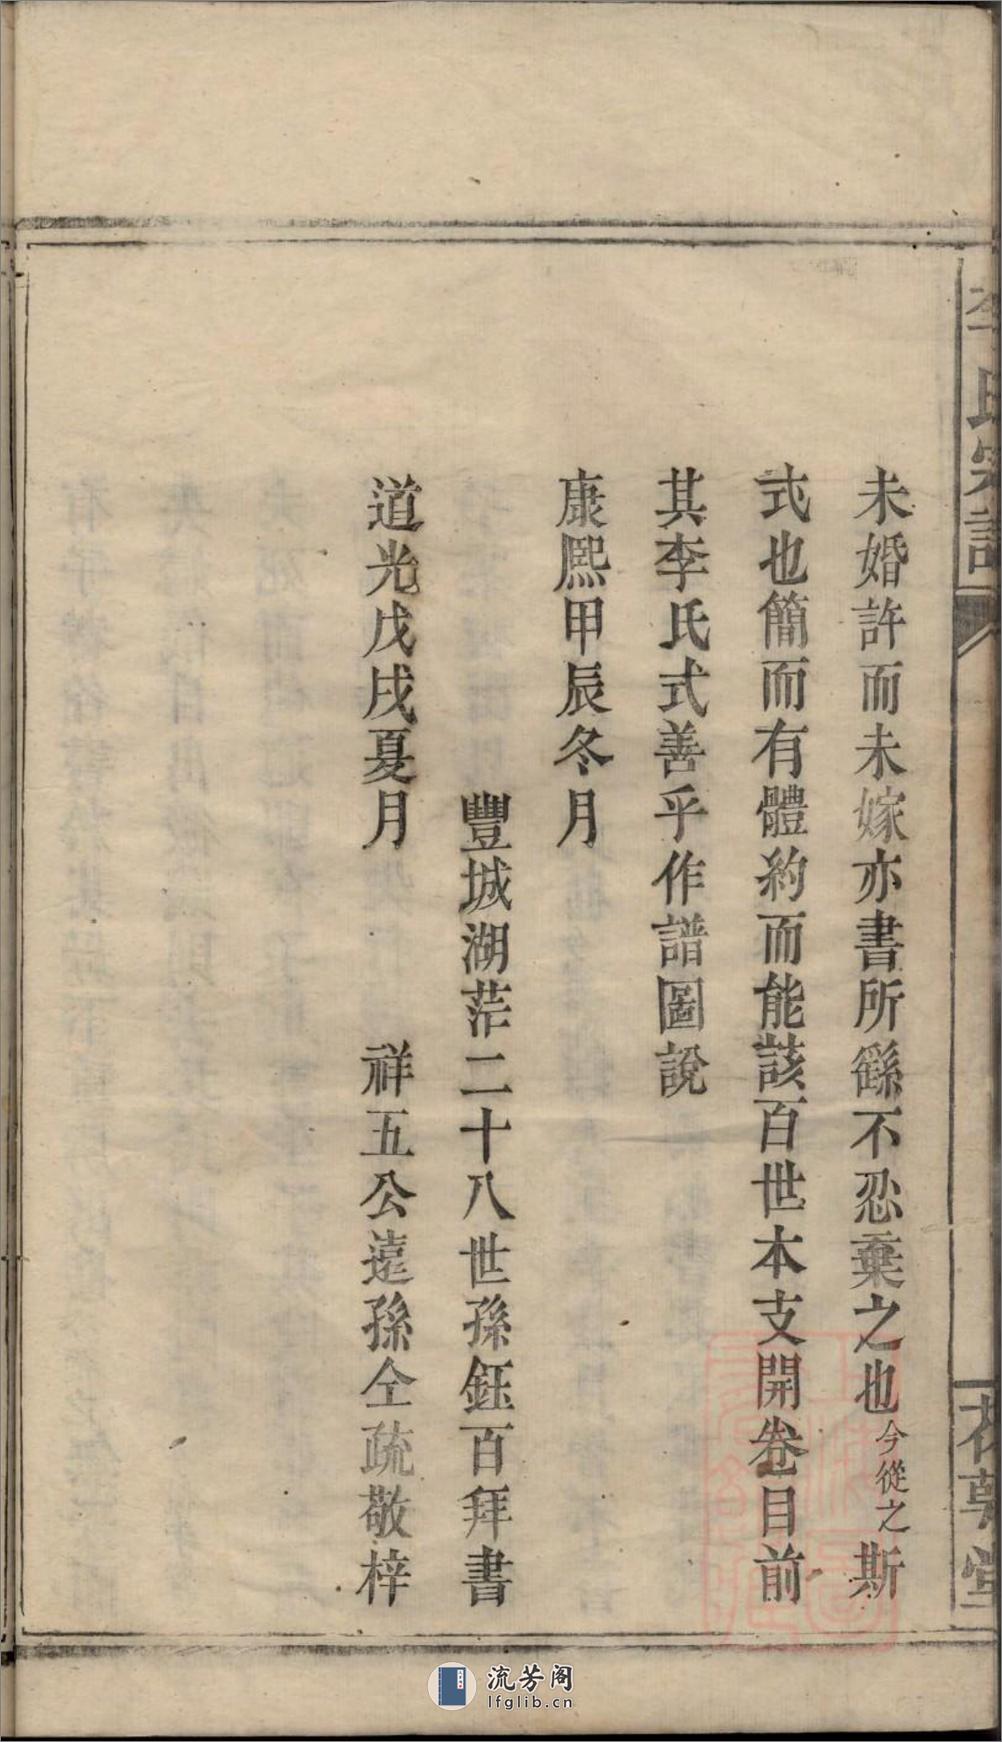 未婚許而未嫁亦書所繇不忍棄之也今從之斯
式也簡而有體約而能該百世本支開卷目前
其李氏式善乎作譜圖說
康熙甲辰冬月
豐城湖茫二十八世孫鈺百拜書
道光戊戌夏月
祥五公遠孫仝疏敬梓
李氏宗譜
堂
流芳阁
lfglib.cn